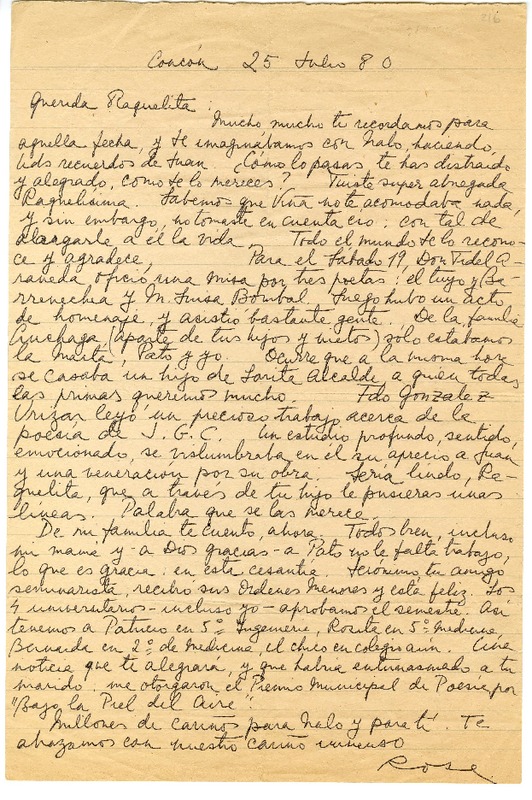 216
Concón 25 Julio 80
Querida Raquelita:
Mucho mucho te recordamos para
aquella fecha, y te imaginábamos con Nalo, haciendo
Uds recuerdos de Juan ¿Cómo lo pasas te has distraído
y alegrado, como te lo mereces? Tuiste super abnegada
Raquelísima. Sabemos que Viña no te acomodaba nada,
y sin embargo, no tomaste en cuenta eso: con tal de
alargarle a él la vida. Todo el mundo te lo recono-
ce y agradece, Para el Sábado 19, Don Fidel A-
raneda ofició una misa por tres poetas: el tuyo y Ba
rrenechea y M. Luisa Bombal. Luego hubo un acto
de homenaje, y asistió bastante gente. De la familia
Cruchaga (aparte de tus hijos y nietos) sólo estabamos
la Marta, Pato y yo. Ocurre que a la misma hora
se casaba un hijo de Sarita Alcalde a quien todas
las primas queremos mucho. Fdo Gonzalez
Urizar leyó un precioso trabajo acerca de la
poesía de J.G.C. Un estudio profundo, sentido,
emocionado, se vislumbraba en el su aprecio a Juan
y una veneracion por su obra. Sería lindo, Ra-
quelita, que a través de tu hijo le pusieras unas
lineas. Palabra que se las merece
De mi familia te cuento, ahora. Todos bien, incluso
mi mamá y -a Dios gracias- a Pato no le falta trabajo,
lo que es gracia en esta cesantía. Jerónimo, tu amigo
seminarista, recibió sus Ordenes Menores y está feliz. Los
4 universitarios - incluso yo - aprobamos el semestre. Así
tenemos a Patricio en 5º Ingeniería, Rosita en 5º medicina,
Bernardita en 2º de Medicina, el chico en colegio aún. Una
noticia que te alegrará, y que habría entusiasmado a tu
marido: me otorgaron el Premio Municipal de Poesía por
"Bajo la Piel del Aire".
Millones de cariños para Nalo y para tí. Te
abrazamos con nuestro cariño inmenso
Rosa